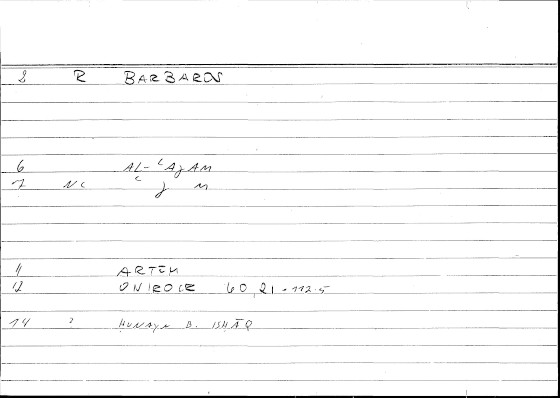 2 R BARBAROS
6 AL-ʿAJAM
7 NC ʿ J M
11 ARTEM
12 ONIROCR 60,21 - 112.5
14 ? HUNAYN B. ISHĀQ